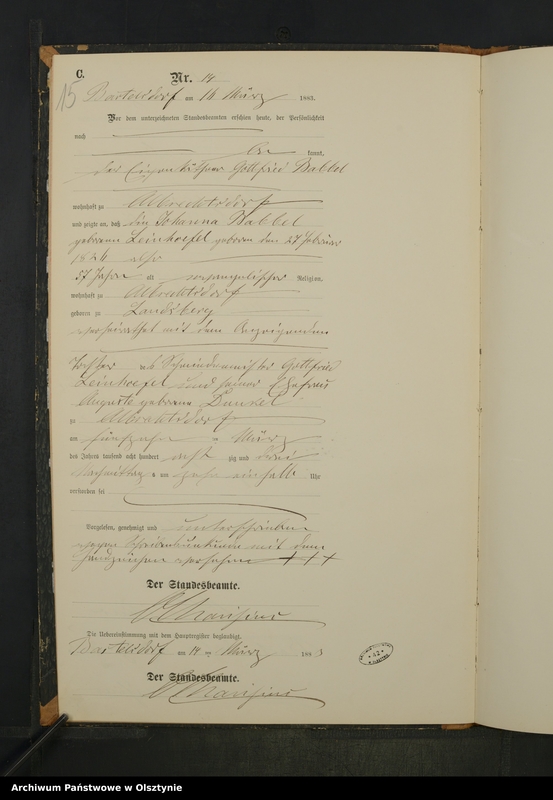 C.
Nr. 14
15
Bartelsdorf am 16 März 1883.
Vor dem unterzeichneten Standesbeamten erschien heute, der Persönlichkeit
nach
kannt,
der Eigenkäthner Gottfried Babbel
wohnhaft zu Albrechtsdorf
und zeigte an, daß die Johanna Babbel
geborene Leinhoefel geboren den 27 Februar
1826 also
57 Jahre alt, evangelischer Religion,
wohnhaft zu Albrechtsdorf
geboren zu Landsberg
verheirathet mit dem Anzeigenden
Tochter des Schmiedemeister Gottfried
Leinhoefel und seiner Ehefrau
Auguste geborene Dunkel
zu Albrechtsdorf
am fünfzehn ten März
des Jahres tausend acht hundert acht zig und drei
Nachmittag s um zehn einhalb Uhr
verstorben sei
Vorgelesen, genehmigt und unterschrieben
wegen Schreibensunkunde mit dem
Handzeichen versehen +++
Der Standesbeamte.
Die Uebereinstimmung mit dem Hauptregister beglaubigt.
Bartelsdorf am März 188
Der Standesbeamte.
42
Archiwum Państwowe w Olsztynie